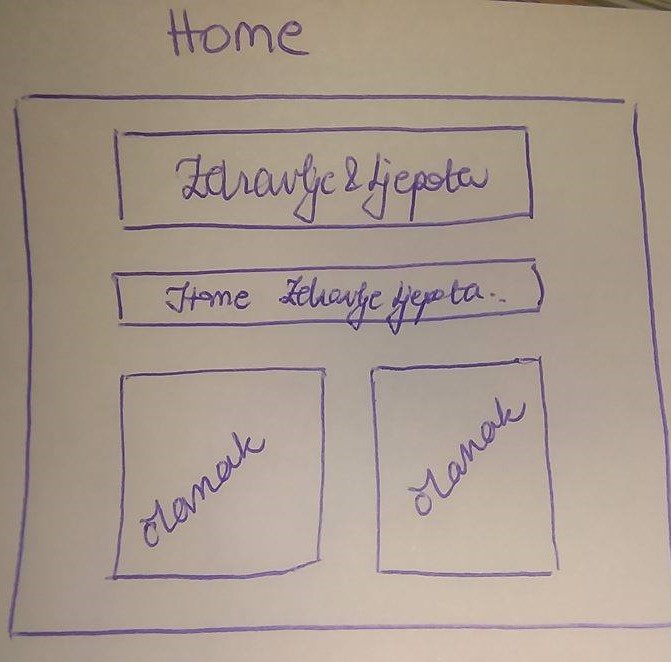 Home
Zdravlje & Ljepota
Home Zdravlje Ljepota...
članak
članak